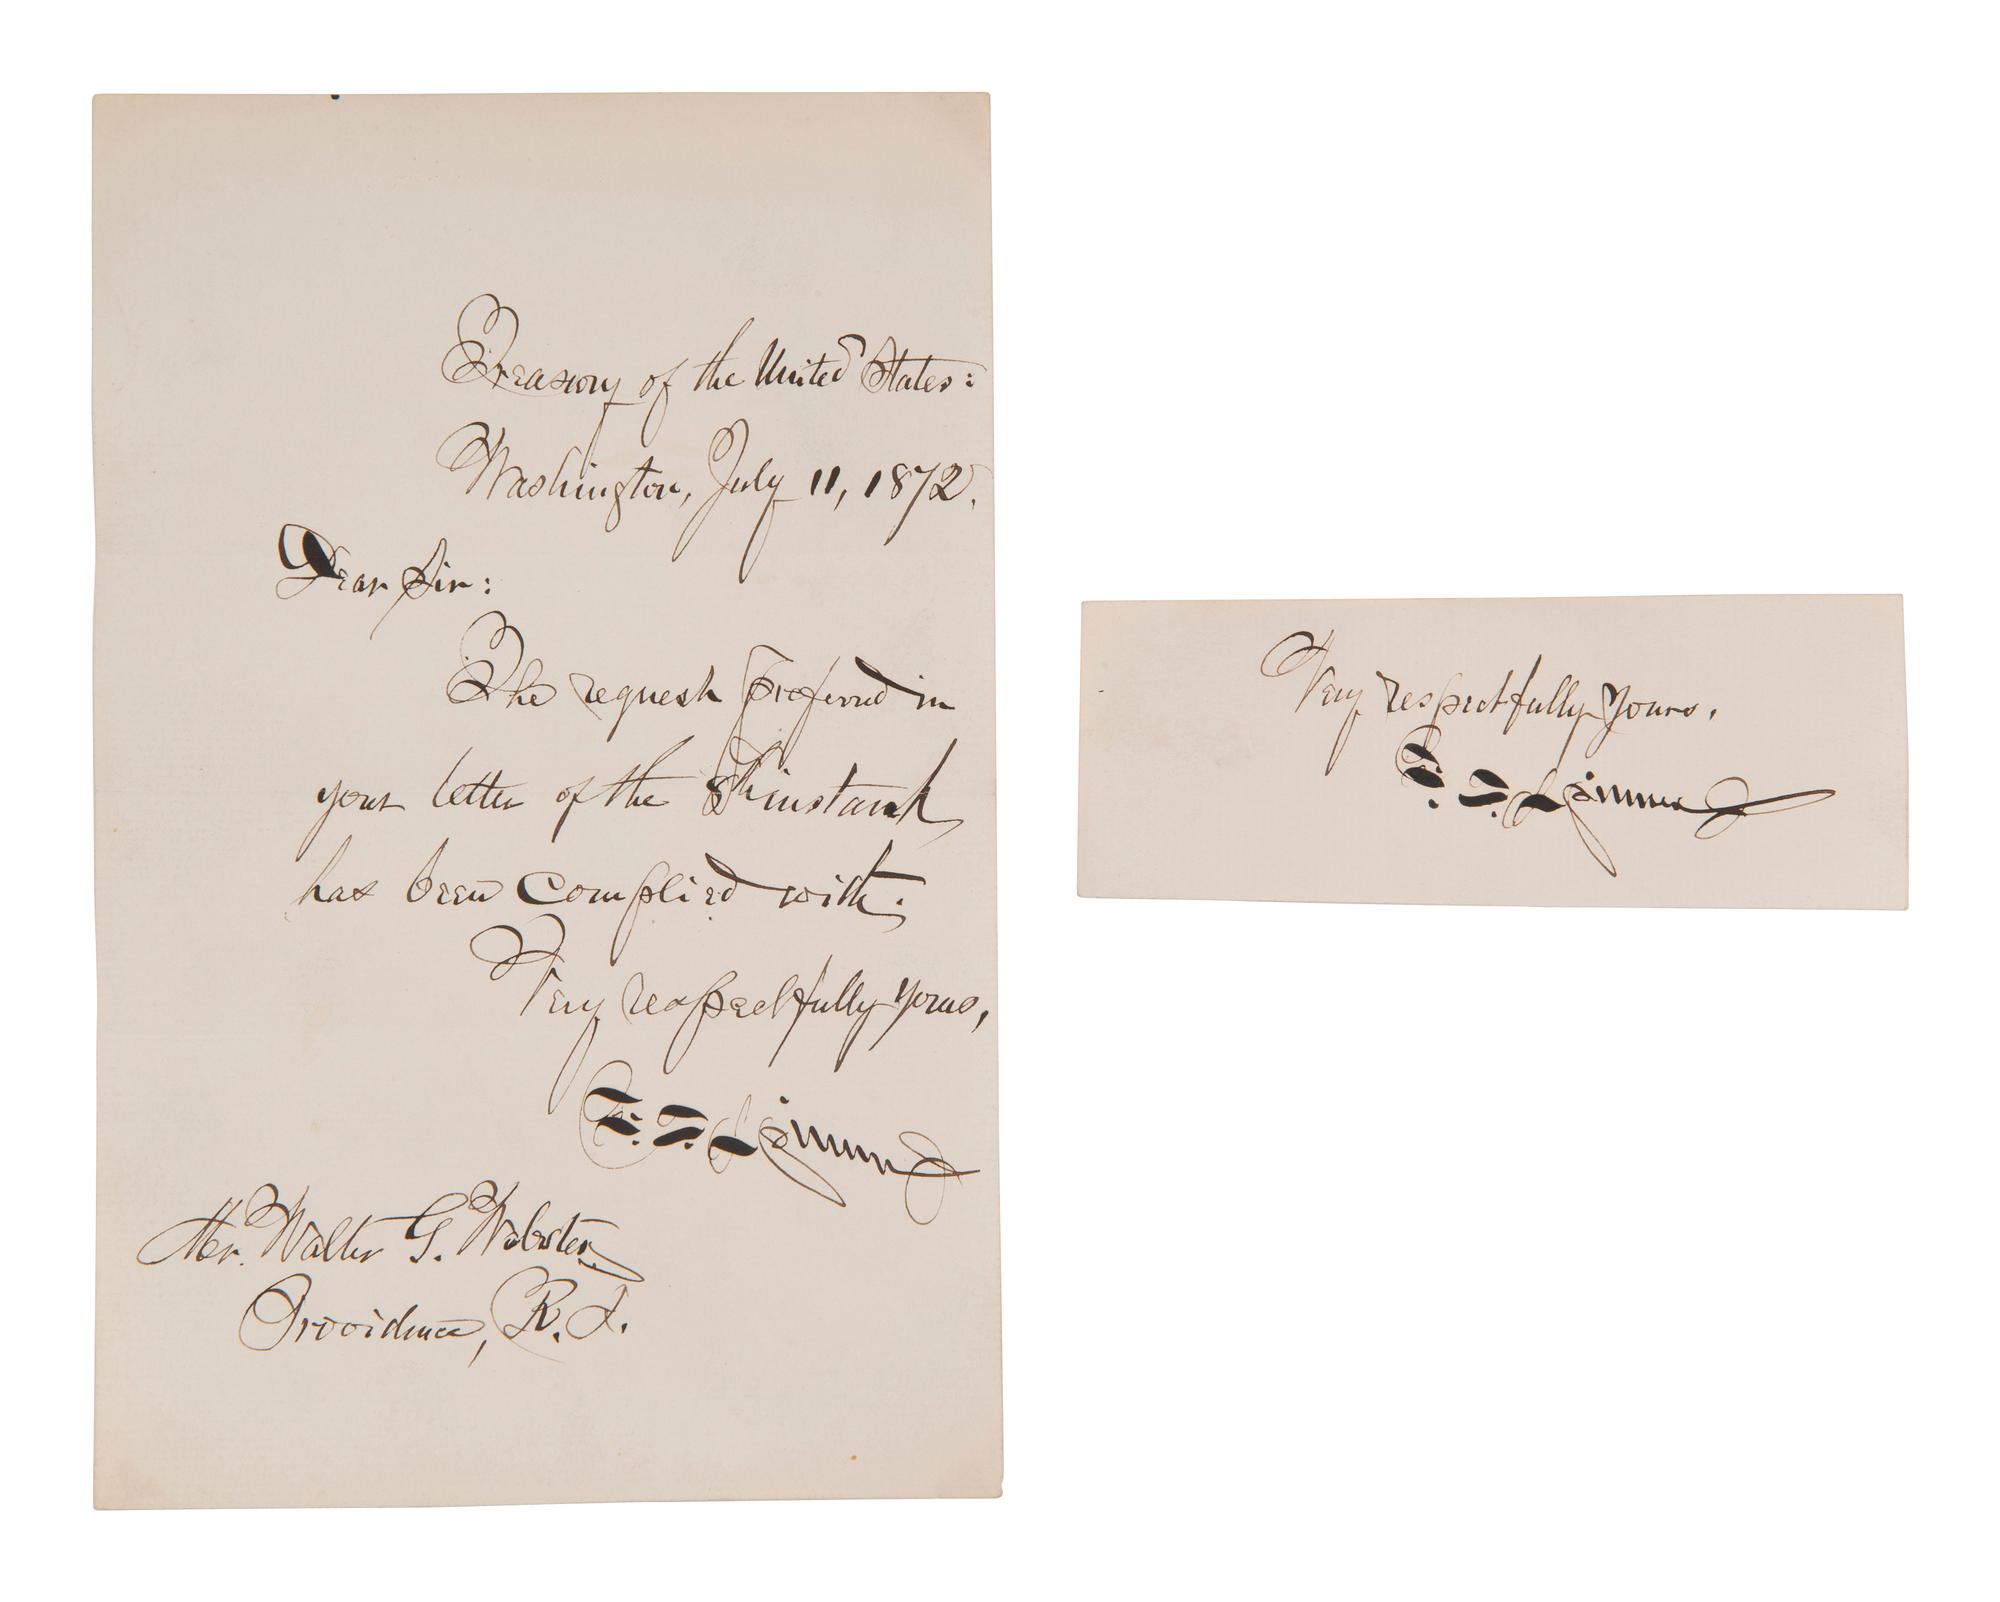 Treasury of the United States:
Washington, July 11, 1872.
Dear Sir:
The request preferred in
your letter of the 8th instant,
has been complied with.
Very respectfully yours,
F. E. Spinner
Mr. Walter G. Webster,
Providence, R. I.
Very respectfully yours,
F. E. Spinner